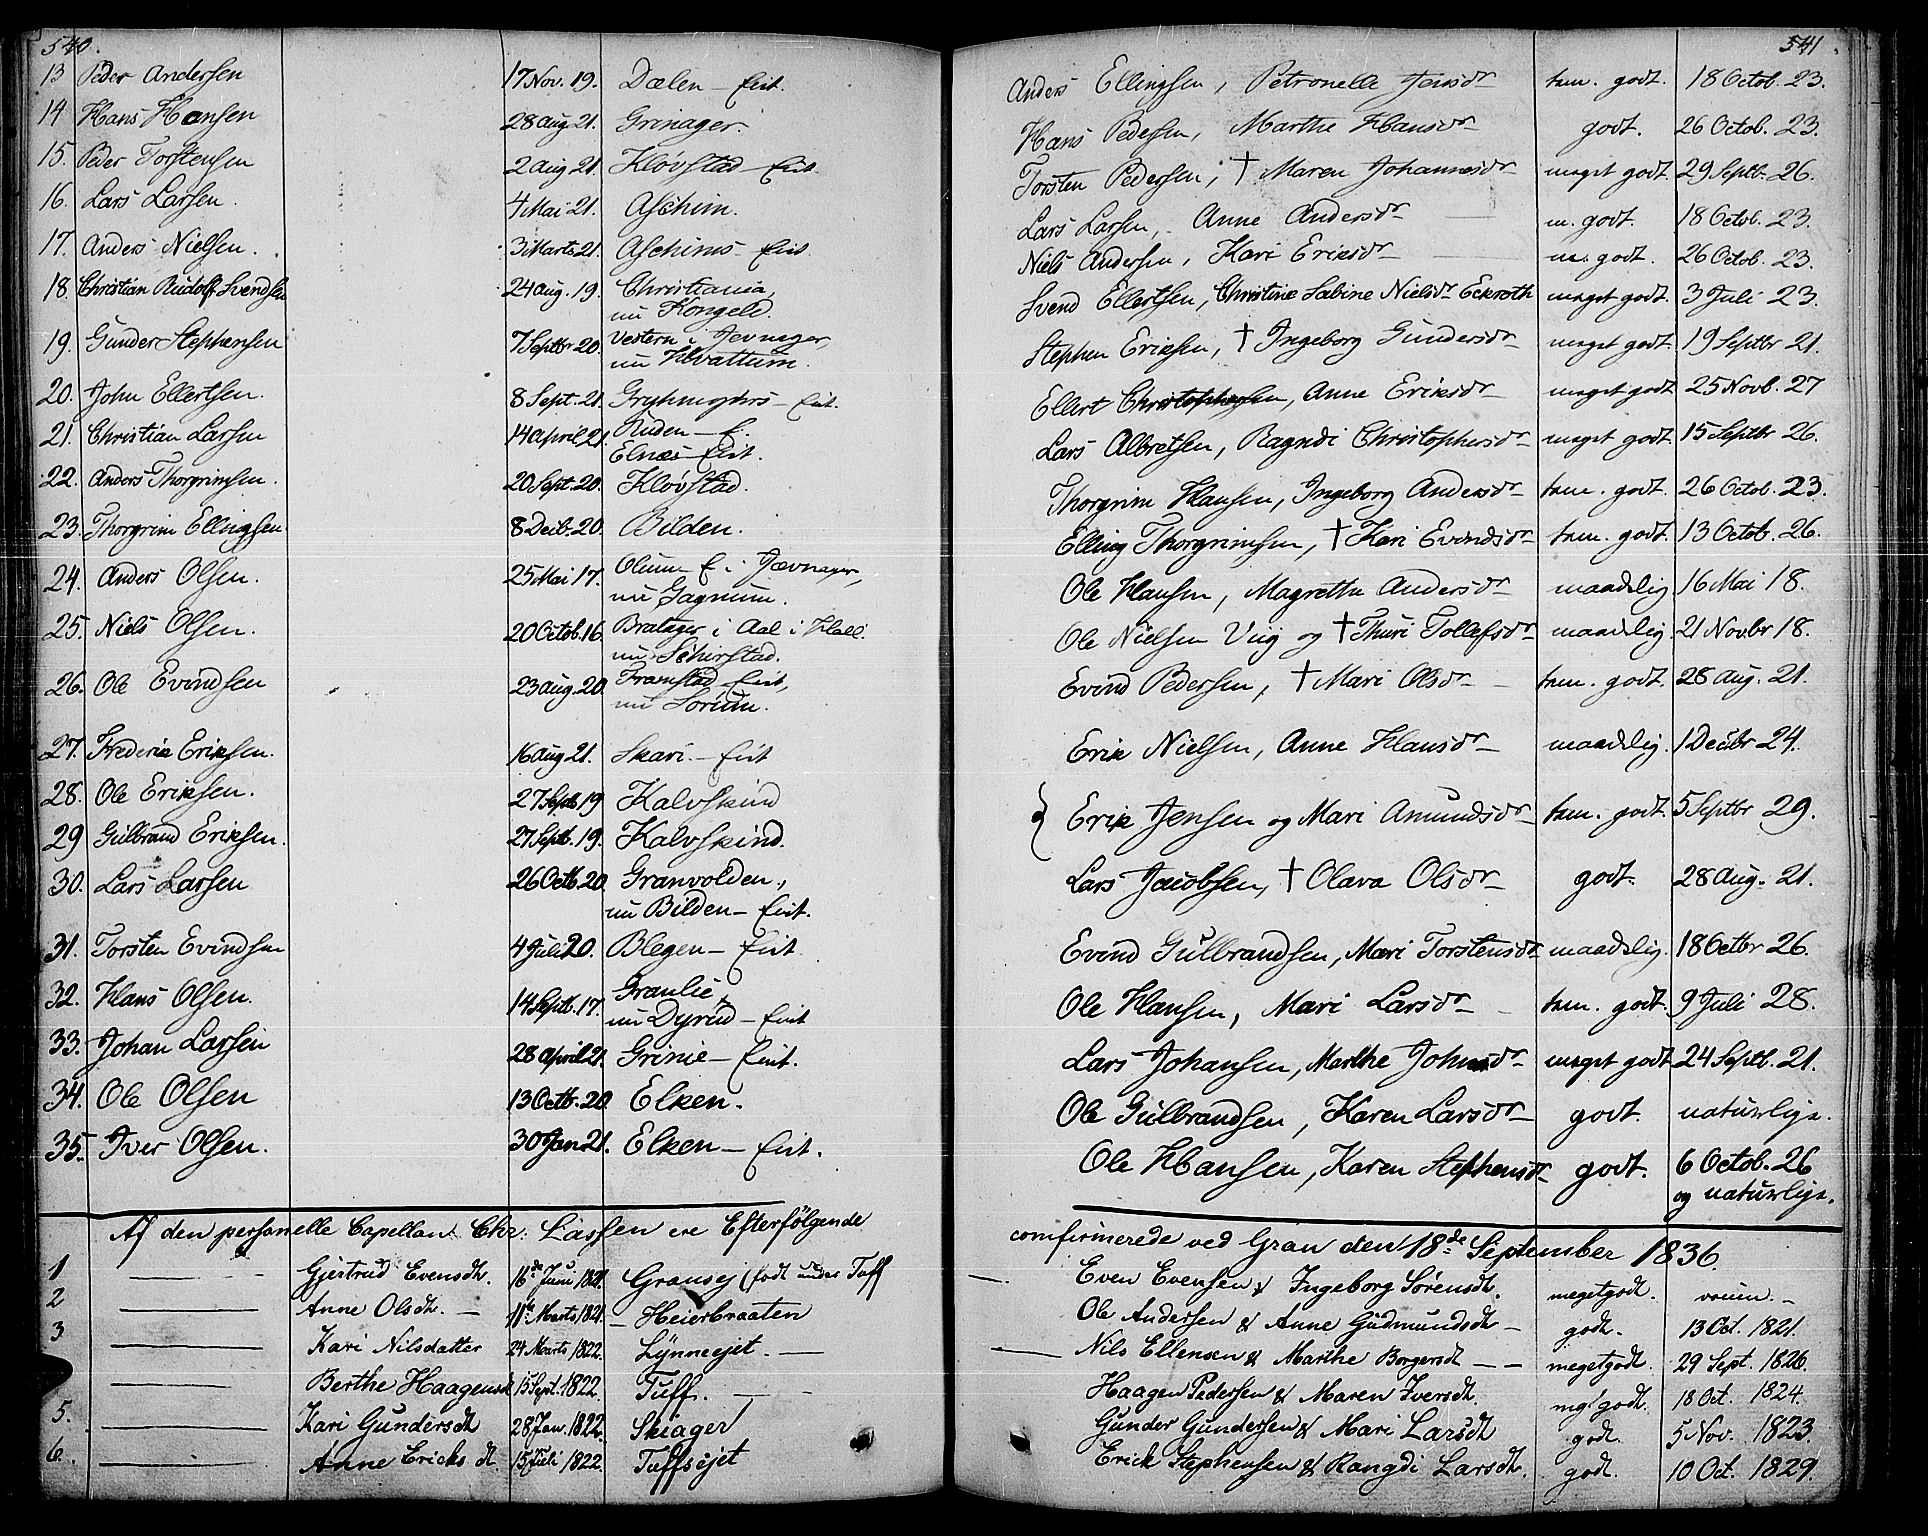 540.
541.
13 Peder Andersen 17 Nov. 19. Dælen – Eiet. Anders Ellingsen, Petronelle Jensdr tem. godt. 18 Octob. 23.
14 Hans Hansen 28 Aug 21. Grinager. Hans Pedersen, Marthe Hansdr godt. 26 Octob. 23.
15. Peder Torstensen 2 Aug 21. Kløvstad – Eiet. Torsten Pedersen, † Maren Johannesdr meget godt. 29 Septbr 26.
16. Lars Larsen. 4 Mai 21. Aschim. Lars Larsen, Anne Andersdr m. godt. 18 Octob. 23.
17. Anders Nielsen. 3 Marts 21. Aschims – Eiet. Niels Andersen, Kari Eriksdr m. godt. 26 Octob. 23.
18. Christian Rudolf Svendsen 24 Aug. 19. Christiania, Svend Ellertsen, Christine Sabine Nielsdr Eckroth meget godt. 3 Juli 23.
nu Kongeld.
19. Gunder Stephensen 7 Septbr 20. Vestern i Jevnager, Stephen Eriksen, † Ingeborg Gundersdr meget godt. 19 Septbr 21.
nu Hvattum.
20. John Ellertsen. 8 Sept. 21. – Eiet. Ellert Christophersen, Anne Eriksdr meget godt 25 Novb. 27
21. Christian Larsen 14 April 21. Ruden – E. Lars Albretsen, Ragndi Christophersdr meget godt 15 Septbr 26.
Elnæs Eiet.
22. Anders Thorgrimsen. 20 Sept. 20. Kløvstad. Thorgrim Hansen, Ingeborg Andersdr tem. godt. 26 Octob. 23.
23. Thorgrim Ellingsen 8 Decb. 20. Bilden. Elling Thorgrimsen, † Kari Evendsdr tem. godt. 13 Octob. 26.
24. Anders Olsen. 25 Mai 17. Olum E. i Jævnager, Ole Hansen, Magrethe Andersdr maadelig 16 Mai 18.
nu Gagnum.
25. Niels Olsen. 20 Octob. 16. Bratager i Aal i Hall. Ole Nielsen Viig og † Thuri Tollefsdr maadelig. 21 Novbr 18.
nu Schirstad.
26. Ole Evindsen 23 Aug. 20. Framstad Eiet, Evind Pedersen, † Mari Olsdr tem. godt. 28 Aug. 21.
nu Sørum.
27. Frederik Eriksen. 16 Aug 21. Skari. – Eiet Erik Nielsen, Anne Hansdr maadelig. 1 Decbr 24.
28. Ole Eriksen. 27 Septb 19 Kalvskind
29 Gulbrand Eriksen. 27 Septb. 19. Kalvskind. } Erik Jensen og Mari Amundsdr tem. godt. 5 Septbr 29.
30. Lars Larsen 26 Octb. 20. Granvolden, Lars Jacobsen, † Olava Olsdr godt. 28 Aug. 21.
nu Bilden – Eiet.
31. Torsten Evindsen 4 Juli 20. Blegen – Eiet. Evind Gulbrandsen, Mari Torstensdr maadelig. 18 Octbr 26.
32. Hans Olsen. 14 Septb. 17. Granlie, Ole Hansen, Mari Larsdr tem. godt. 9 Juli 28.
nu Dyrud – Eiet
33. Johan Larsen 28 April 21. Grinie – Eiet. Lars Johansen, Marthe Johnsdr meget godt 24 Septb. 21.
34. Ole Olsen 13 Octb. 20 Elken. Ole Gulbrandsen, Karen Larsdr godt. naturlige.
35. Iver Olsen. 30 Jan 21. Elken – Eiet. Ole Hansen, Karen Stephensdr godt. 6 Octob. 26
og naturlige.
Af den personelle Capellan Chr. Lassen ere Efterfölgende confirmerede ved Gran den 18de September 1836.
1 Gjertrud Evensdtr. 16de Juni 1821. Gransej (født under Tuff Even Evensen & Ingeborg Sørensdtr. megetgodt.
2 Anne Olsdtr. – 11te Marts 1821. – Heierbraaten Ole Andersen & Anne Gudmundsdtr – godt. 13 Oct. 1821.
3 Kari Nilsdatter 24 Marts 1822. Lynneejet. – Nils Ellensen & Marthe Borgersdt – – megetgodt. 29 Sept. 1826.
Berthe Haagensdt 15 Sept. 1822. Tuff. – Haagen Pedersen & Maren Iversdt. mg! godt. 18 Oct. 1824.
5. Kari Gundersdt 28 Jan 1822. Skiager Gunder Gundersen & Mari Larsdt godt. 5 Nov. 1823.
6. Anne Ericksdt. 15 Juli 1822. Tuffsejet Erick Stephensen & Rangdi Larsdt. godt. 10 Oct. 1829.